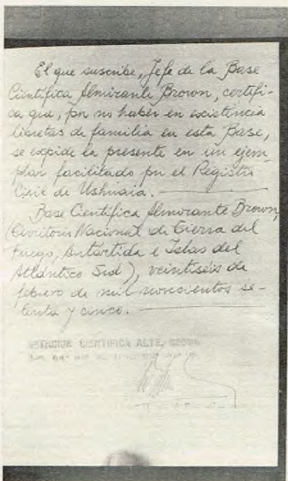 El que suscribe, Jefe de la Base
Científica Almirante Brown, certifi-
ca que, por no haber en existencia
libretas de familia en esta Base,
se expide la presente en un ejem-
plar facilitado por el Registro
Civil de Ushuaia.
Base Científica Almirante Brown,
(Territorio Nacional de Tierra del
Fuego, Antártida e Islas del
Atlántico Sud), veintiséis de
febrero de mil novecientos se-
tenta y cinco.
ESTACION CIENTIFICA ALTE. BROWN